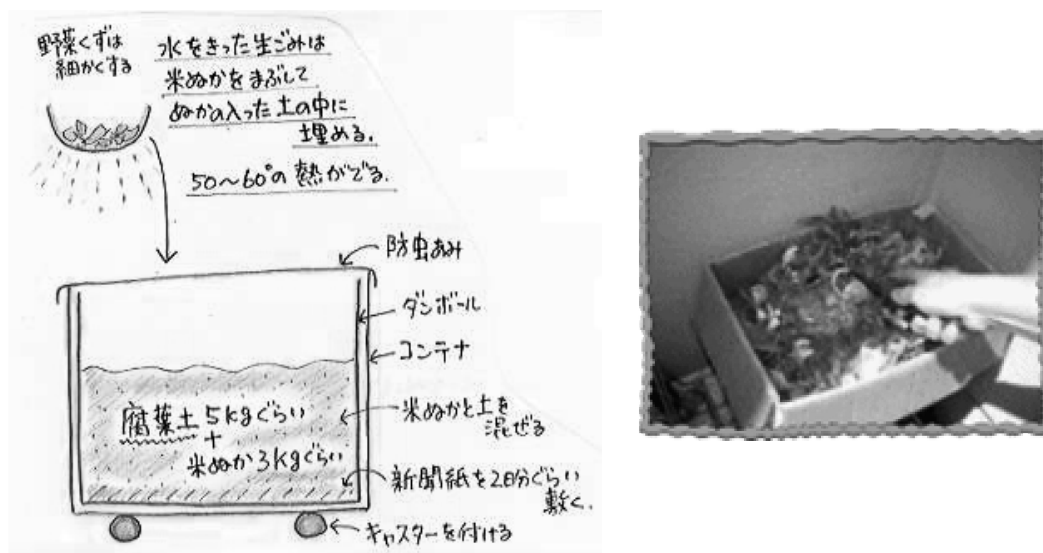 野菜くずは
細かくする
水をきった生ごみは
米ぬかをまぶして
ぬかの入った土の中に
埋める。
50〜60°の熱がでる。
防虫あみ
ダンボール
コンテナ
腐葉土5kgぐらい
+
米ぬか3kgぐらい
米ぬかと土を
混ぜる
新聞紙を2日分ぐらい
敷く。
キャスターを付ける